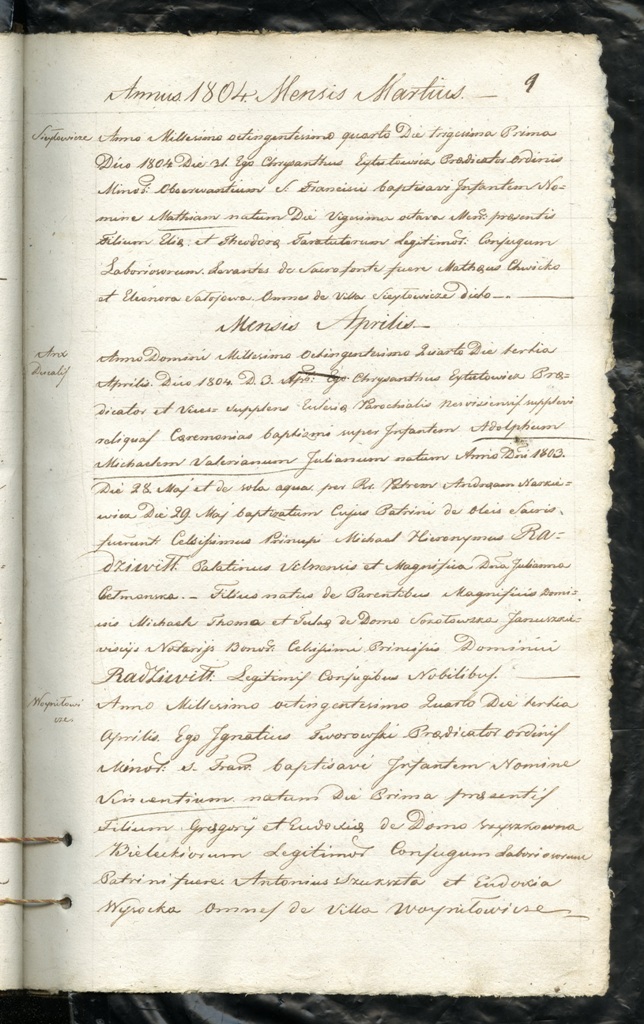 Annus 1804 Mensis Martius. — 9
Anno Millesimo octingentesimo quarto Die trigesima Prima
Dico 1804 Die 31. Ego Chrysanthus Eytutowicz Prædicator Ordinis
Minor: Observantium S. Francisci baptisavi Infantem No-
mine Mathiam natum Die Vigesima octava Men: præsentis
Filium Eliæ et Theodoræ Legitimor: Conjugum
Laboriosorum. Levantes de Sacro fonte fuere Mathæus Chwicko
et Eleonora Omnes de Villa dicto —
Mensis Aprilis —
Arx
Ducalis
Anno Domini Millesimo Octingentesimo Quarto Die tertia
Aprilis. Dico 1804. D. 3. Apr: Ego Chrysanthus Eytutowicz Præ-
dicator et Vices Supplens Ecclesiæ Parochialis Nesvisiensis supplevi
reliquas Caremonias baptismi super Infantem Adolphum
Michaelem Valerianum Julianum natum Anno Dni 1803.
Die 28 Maj et de sola aqua per R. Patrem Andream Narkie-
wicz Die 29 Maj baptizatum Cujus Patrini de Oleis Sacris
fuerunt Celsissimus Princeps Michael Hieronymus Ra-
dziwill Palatinus Vilnensis et Magnifica Dna Julianna
Cetmanska. — Filius natus de Parentibus Magnificis Domi-
nis Michaele Thoma et Tecla de Domo Januszkie-
viciis Notariis Bonor: Celsissimi Principis Dominici
Radziwill. Legitimis Conjugibus Nobilibus. —
Woyniłowi
cze
Anno Millesimo octingentesimo Quarto Die tertia
Aprilis. Ego Ignatius Tworowski Prædicator ordinis
Minor: S. Fran: baptisavi Infantem Nomine
Vincentium natum Die Prima præsentis
Filium Gregorij et Eudociæ de Domo
Bieleckiorum Legitimor: Conjugum Laboriosorum
Patrini fuere. Antonius Szukszta et Eudoxia
Wysocka Omnes de Villa Woyniłowicze —